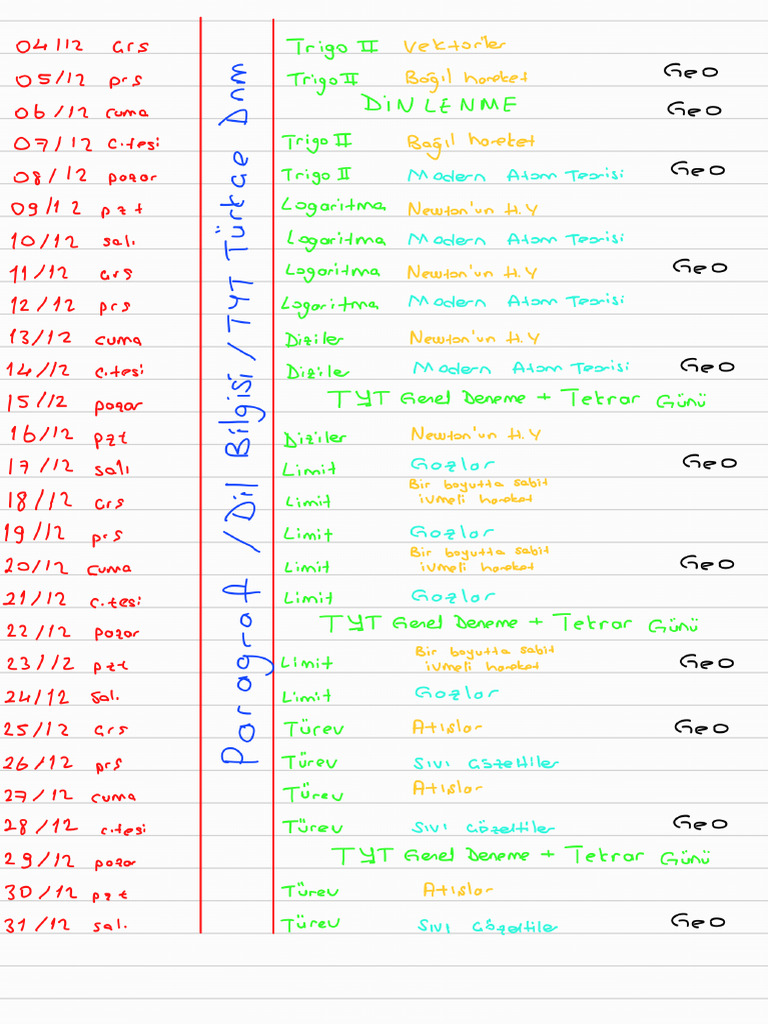 04/12 çrş Trigo II Vektörler
05/12 prş Trigo II Bağıl hareket GEO
06/12 cuma DİNLENME GEO
07/12 c.tesi Trigo II Bağıl hareket
08/12 pazar Trigo II Modern Atom Teorisi GEO
09/12 pzt Logaritma Newton'un H.Y
10/12 salı Logaritma Modern Atom Teorisi
11/12 çrş Logaritma Newton'un H.Y GEO
12/12 prş Logaritma Modern Atom Teorisi
13/12 cuma Diziler Newton'un H.Y
14/12 c.tesi Diziler Modern Atom Teorisi GEO
15/12 pazar TYT Genel Deneme + Tekrar Günü
16/12 pzt Diziler Newton'un H.Y
17/12 salı Limit Gazlar GEO
18/12 çrş Limit Bir boyutta sabit
ivmeli hareket
19/12 prş Limit Gazlar
20/12 cuma Limit Bir boyutta sabit
ivmeli hareket GEO
21/12 c.tesi Limit Gazlar
22/12 pazar TYT Genel Deneme + Tekrar Günü
23/12 pzt Limit Bir boyutta sabit
ivmeli hareket GEO
24/12 salı Limit Gazlar
25/12 çrş Türev Atışlar GEO
26/12 prş Türev Sıvı Çözeltiler
27/12 cuma Türev Atışlar
28/12 c.tesi Türev Sıvı Çözeltiler GEO
29/12 pazar TYT Genel Deneme + Tekrar Günü
30/12 pzt Türev Atışlar
31/12 salı Türev Sıvı Çözeltiler GEO
Paragraf / Dil Bilgisi / TYT Türkçe Dnm